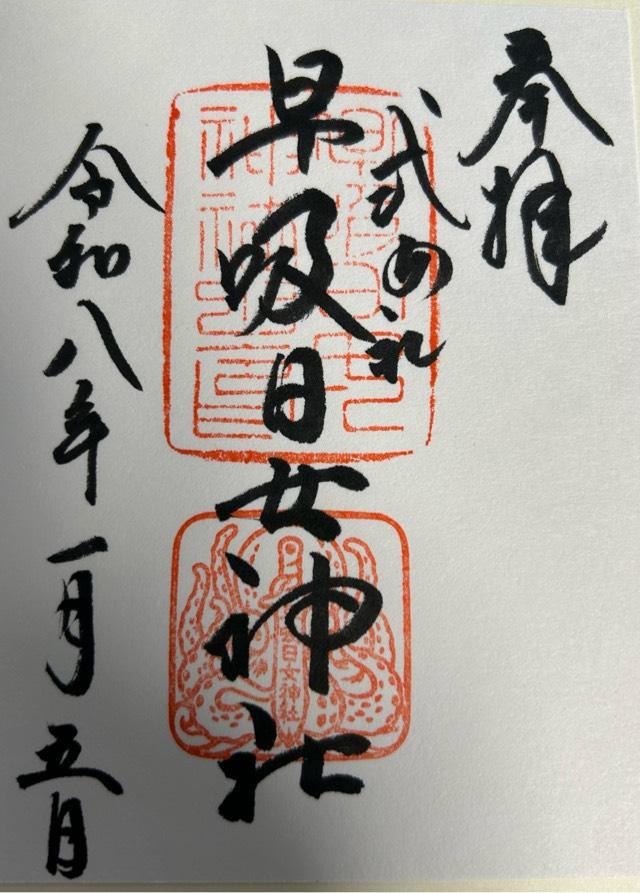 奉拝
式内社
早吸日女神社
令和八年一月五日
日女神社